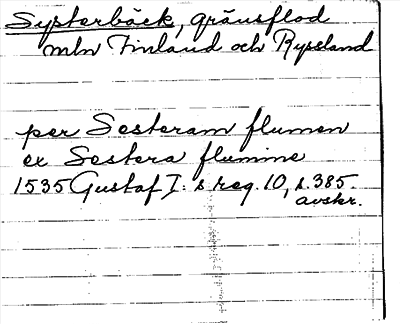 Systerbäck, gränsflod
mln Finland och Ryssland
per Sesteram flumen
ex Sestera flumine
1535 Gustaf I:s reg. 10, s. 385.
avskr.